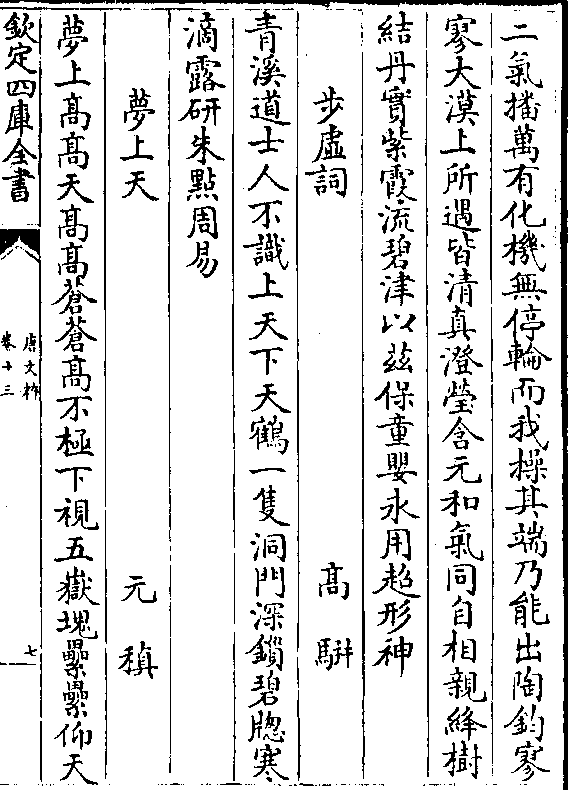 二氣播萬有化機無停輪而我操其端乃能出陶鈞寥
寥大漠上所遇皆清真澄瑩含元和氣同自相親絳樹
結丹實紫霞流碧津以兹保童嬰永用超形神
步虛詞 高駢
青溪道士人不識上天下天鶴一隻洞門深鎖碧牕寒
滴露研朱點周易
夢上天 元稹
夢上高高天高高蒼蒼高不極下視五嶽塊纍纍仰天
欽定四庫全書
唐文粹
卷十三
七